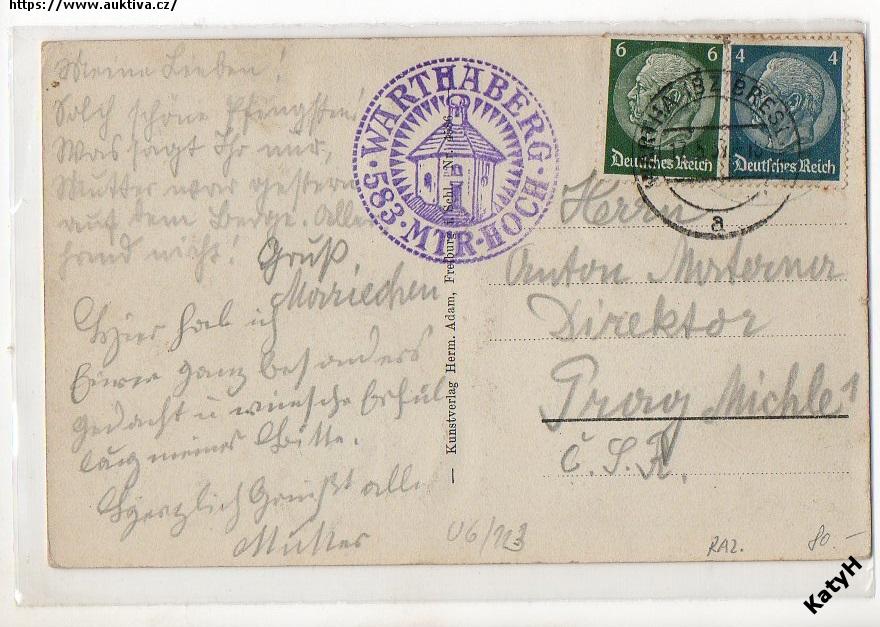 https://www.auktiva.cz/
Meine Lieben!
Solch schöne Pfingsten!
Was sagt Ihr nur,
Mutter war gestern
auf dem Berge. Aller
hand nicht. Gruß
Mariechen
Hier hab ich
Eurer ganz besonders
gedacht u wünsche Erfül
lung meiner Bitte.
Herzlich Grüßt alle
Mutter
WARTHABERG · 583 · MTR-HOCH
— Kunstverlag Herm. Adam, Freiburg i. Schl. Nr.
6 6
Deutsches Reich
4
Deutsches Reich
BRESL
a
Herrn
Anton Materner
Direktor
Prag Michle 1
Č. S. R.
U6/213
RAZ.
80.-
KatyH